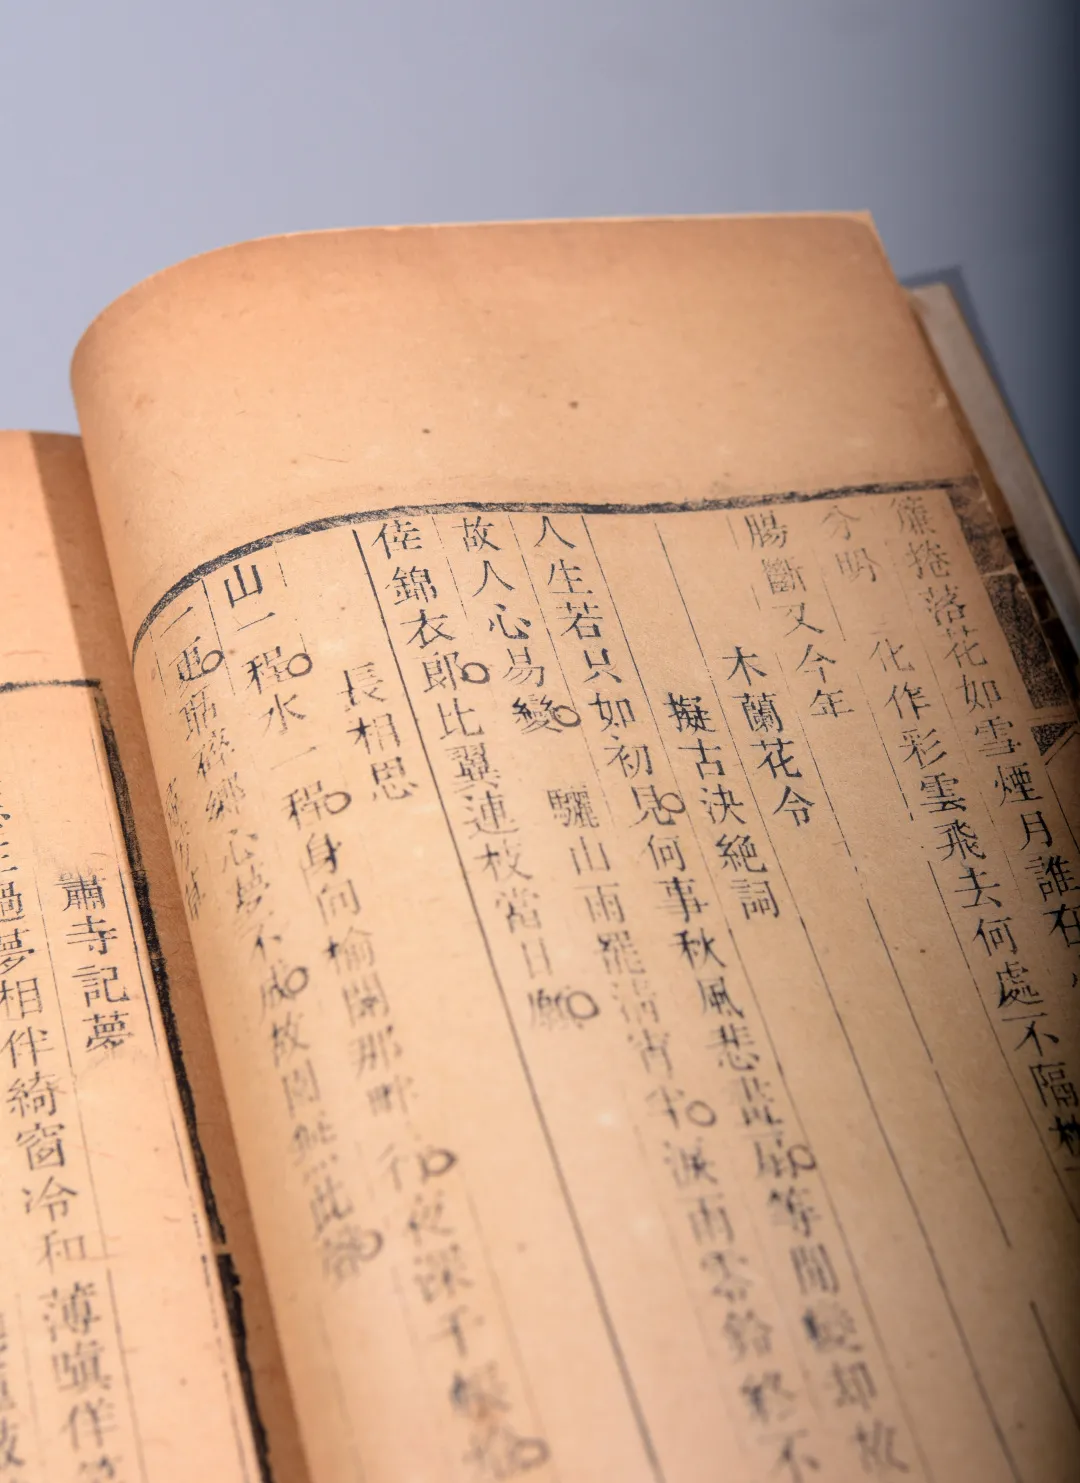 簾捲落花如雪煙月誰在
分明　化作彩雲飛去何處不隔枕
腸斷又今年
木蘭花令
擬古決絕詞
人生若只如初見何事秋風悲畫扇等閒變却故
故人心易變　驪山雨罷清宵半淚雨零鈴終不
倖錦衣郎比翼連枝當日願
長相思
山一程水一程身向榆關那畔行夜深千帳燈
一更聒碎鄉心夢不成故園無此聲
蕭寺記夢
過夢相伴綺窗冷和薄嗔佯